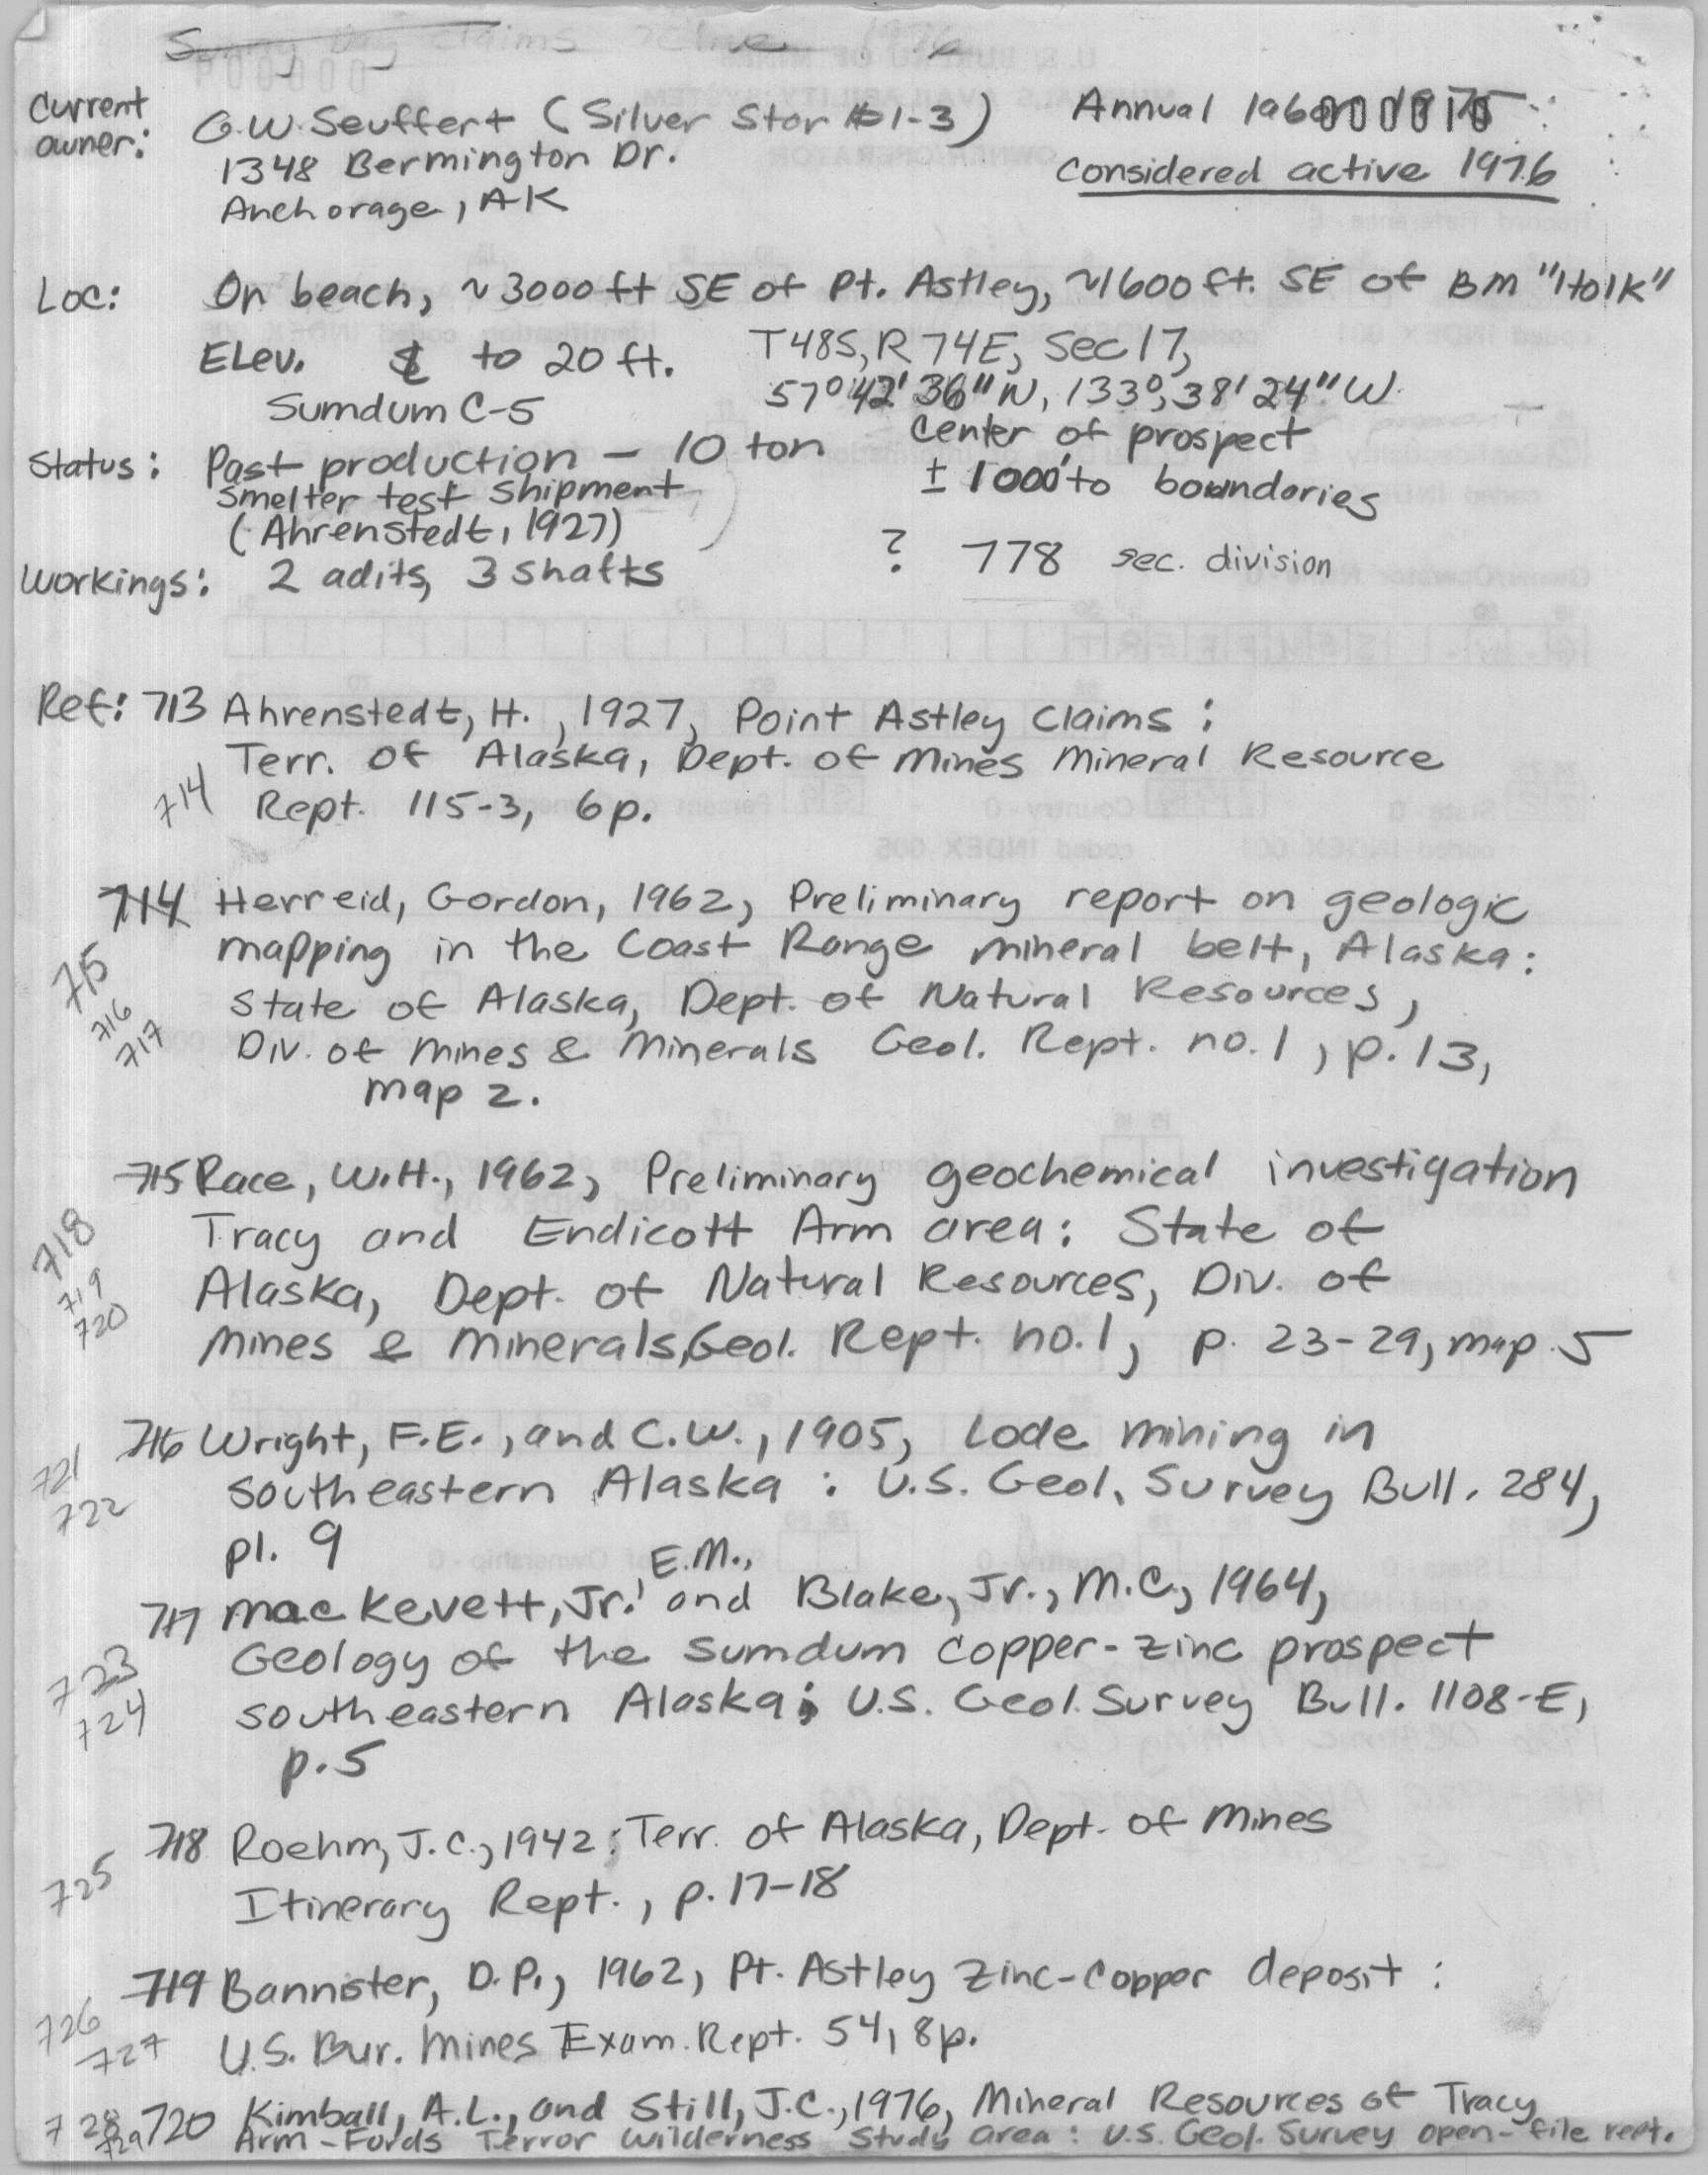 Claims 1976
Current
owner:
G.W. Seuffert (Silver Star #1-3)
1348 Bermington Dr.
Anchorage, AK
Annual labor 1975
000010
Considered active 1976
Loc: On beach, ~3000 ft SE of Pt. Astley, ~1600 ft. SE of BM "Holk"
Elev. to 20 ft. T48S, R74E, Sec 17,
57° 42' 36" N, 133°, 38' 24" W.
Sumdum C-5
center of prospect
Status: Past production - 10 ton
± 1000' to boundaries
smelter test shipment
(Ahrenstedt, 1927)
? 778 sec. division
Workings: 2 adits, 3 shafts
Ref: 713 Ahrenstedt, H., 1927, Point Astley Claims:
Terr. of Alaska, Dept. of Mines Mineral Resource
714 Rept. 115-3, 6p.
714 Herreid, Gordon, 1962, Preliminary report on geologic
715 mapping in the Coast Range mineral belt, Alaska:
716 State of Alaska, Dept. of Natural Resources,
717 Div. of Mines & Minerals Geol. Rept. no. 1, p. 13,
map 2.
715 Race, W.H., 1962, Preliminary geochemical investigation
718 Tracy and Endicott Arm area: State of
719 Alaska, Dept. of Natural Resources, Div. of
720 Mines & Minerals, Geol. Rept. no. 1, p. 23-29, map 5
716 Wright, F.E., and C.W., 1905, Lode mining in
721 southeastern Alaska: U.S. Geol. Survey Bull. 284,
722 pl. 9
717 MacKevett, Jr., E.M., and Blake, Jr., M.C., 1964,
723 Geology of the Sumdum copper-zinc prospect
724 southeastern Alaska; U.S. Geol. Survey Bull. 1108-E,
p. 5
718 Roehm, J.C., 1942: Terr. of Alaska, Dept. of Mines
725 Itinerary Rept., p. 17-18
719 Bannister, D.P., 1962, Pt. Astley Zinc-Copper deposit:
726
727 U.S. Bur. Mines Exam. Rept. 54, 8p.
728 720 Kimball, A.L., and Still, J.C., 1976, Mineral Resources of Tracy
729 Arm-Fords Terror Wilderness Study area: U.S. Geol. Survey open-file rept.